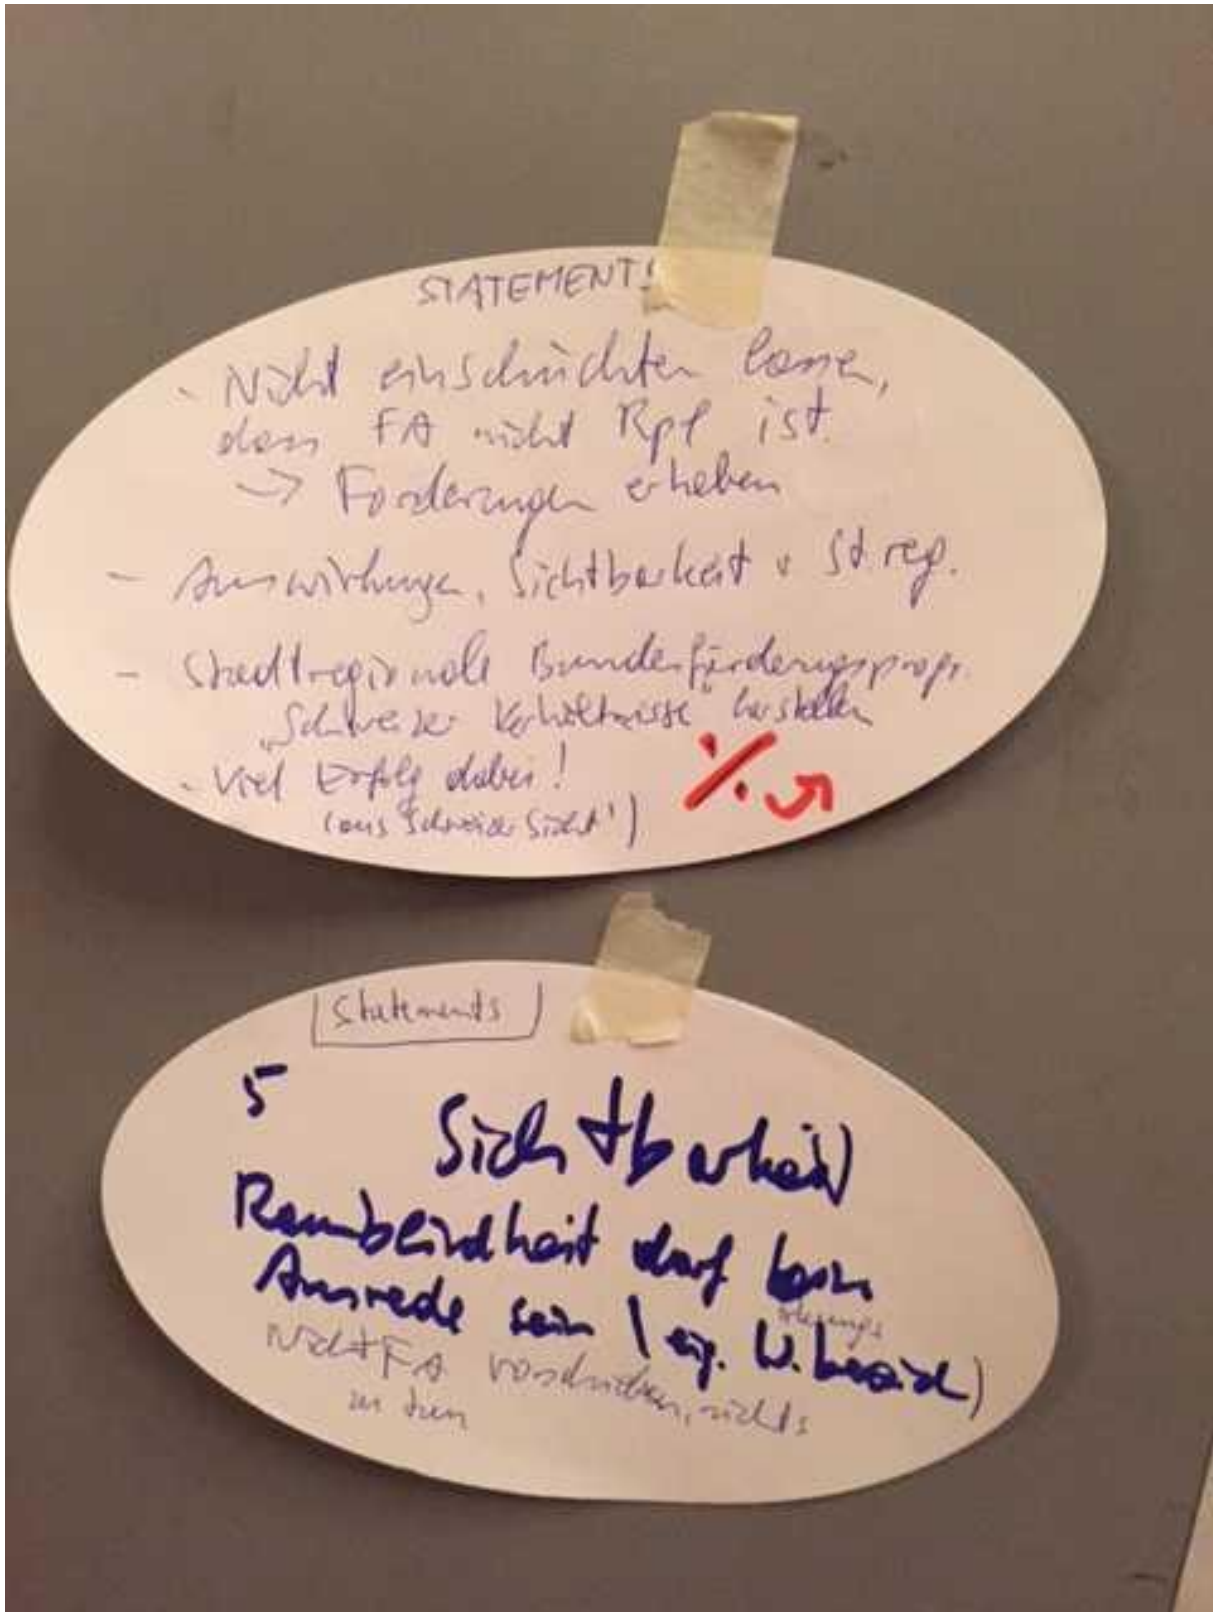 STATEMENTS
- Nicht einschüchtern lassen,
dass FA nicht Rpl ist.
-> Forderungen erheben
- Auswirkungen, Sichtbarkeit v St.reg.
- Stadtregionale Bundesförderungsprogr.
"Schweizer Verhältnisse" herstellen
- Viel Erfolg dabei!
(aus Schweizer Sicht!)
%
Statements
5
Sichtbarkeit
Raumblindheit darf kein
Ausrede sein (eig. W.bereich)
Nicht FA vorschieben, nichts
zu tun